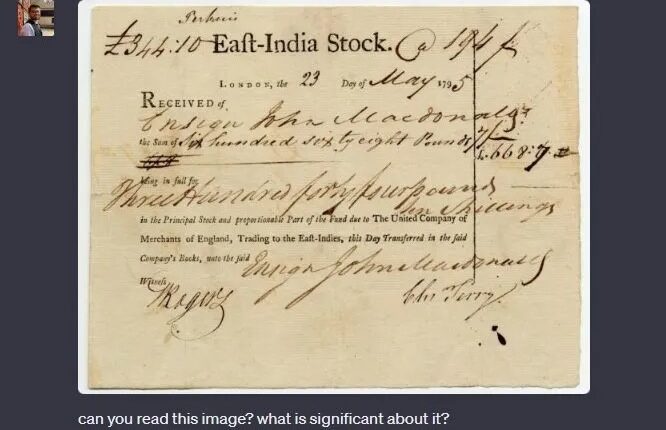 £344:10 East-India Stock. @ 194
LONDON, the 23 Day of May 1795
RECEIVED of
Ensign John Macdonald
the Sum of Six hundred sixty eight Pounds 7/
£668:7
being in full for
Three Hundred forty four pounds
ten Shillings
in the Principal Stock and proportionable Part of the Fund due to The United Company of
Merchants of England, Trading to the East-Indies, this Day Transferred in the said
Company's Books, unto the said Ensign John Macdonald
Witness
Rogers
can you read this image? what is significant about it?